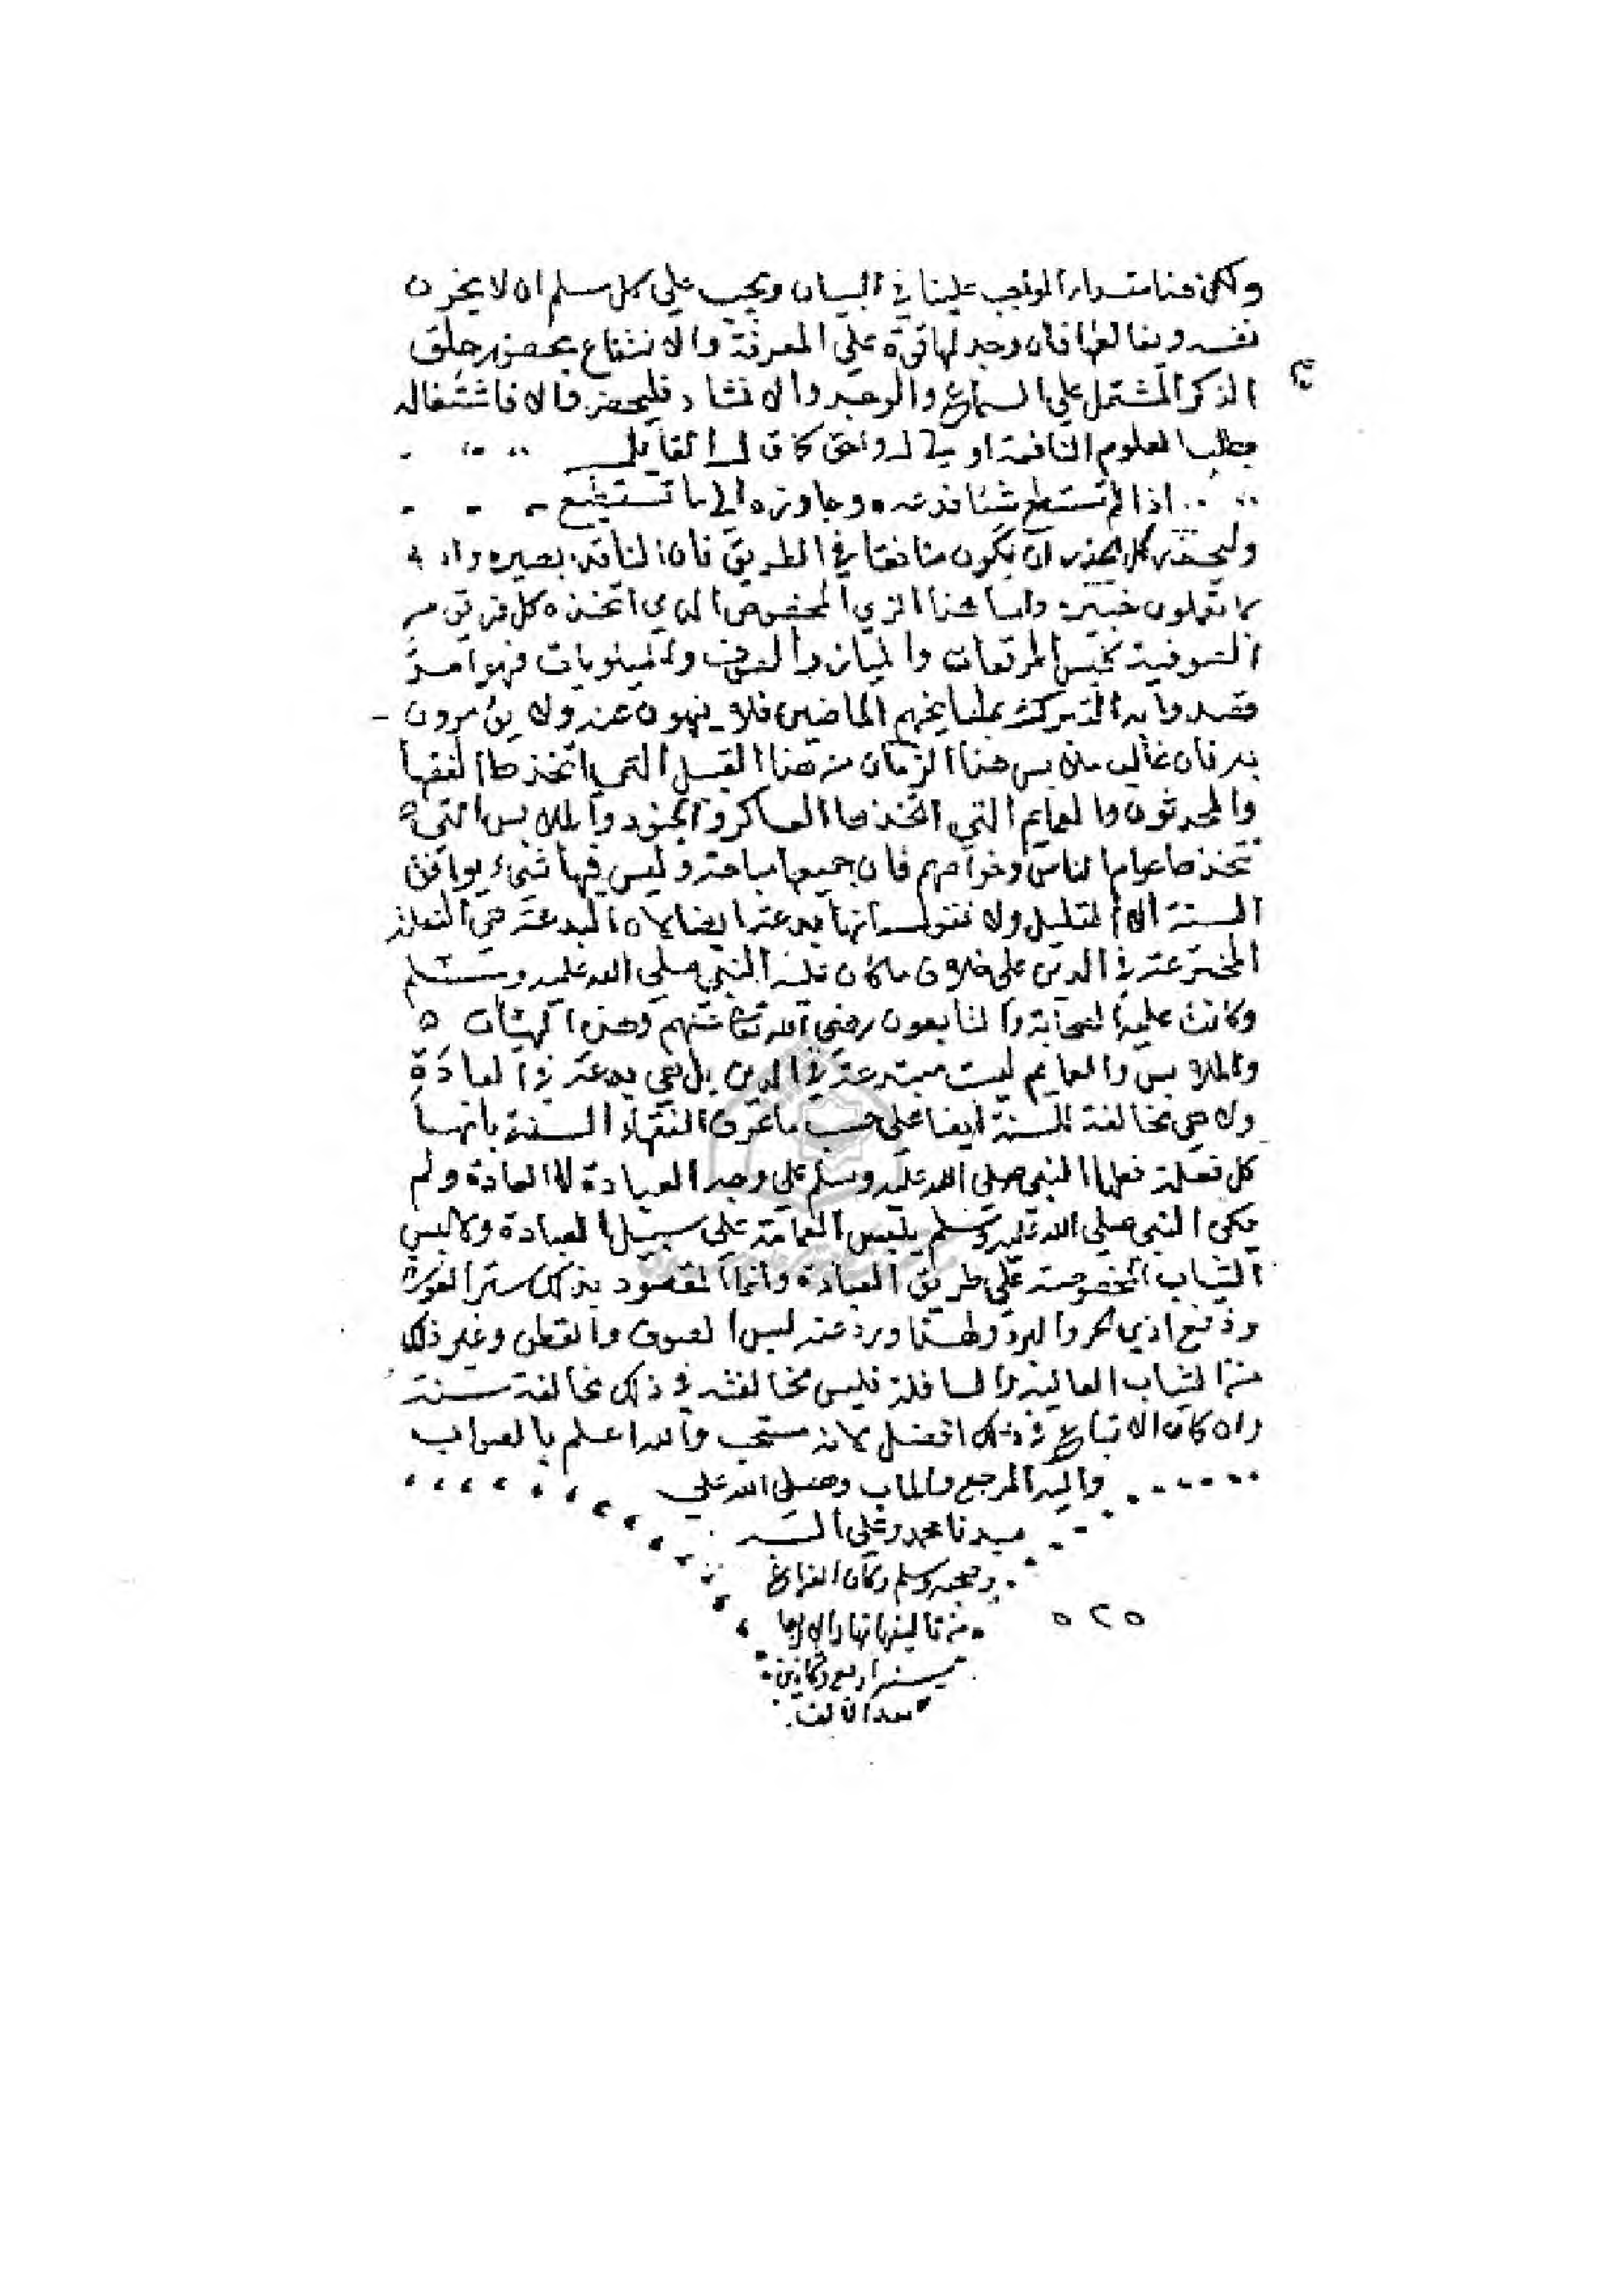 ولكن هذا مقدار الموجب علينا في البيان ويجب على كل مسلم ان لا يخون
نفسه ويغالطها فان وجد لها قوة علي المعرفة والانتفاع بحضور حلق
الذكر المشتمل علي السماع والوجد والانشاد فليحضر والا فاشتغاله
بطلب العلوم النافعة اولى له واحق كما قال القايل
اذا لم تستطع شيئا فدعه وجاوزه الي ما تستطيع
وليحذر كل الحذر ان يكون منافقا في الطريق فان الناقد بصير والله
بما تعملون خبير واما هذا الزي المخصوص الذي اتخذه كل فريق من
الصوفية كلبس المرقعات والميازر الصوف والميلويات فهو امر
قصدوا به التبرك بمشايخهم الماضين فلا ينهون عنه ولا يؤمرون
به فان غالب ملابس هذا الزمان من هذا القبيل التي اتخذها الفقها
والمحدثون والعمايم التي اتخذها العساكر والجنود والملابس التي
تتخذها عوام الناس وخواصهم فان جميعها مباحة وليس فيها شيء يوافق
السنة الا القليل ولا نقول انها بدعة ايضا لان البدعة هي الفعلة
المخترعة في الدين على خلاف ما كان عليه النبي صلي الله عليه وسلم
وكانت عليه الصحابة والتابعون رضي الله تعالى عنهم وهذه الهيئات
والملابس والعمايم ليست مبتدعة في الدين بل هي بدعة في العادة
ولا هي مخالفة للسنة ايضا على حسب ما عرف الفقهاء السنة بانها
كل فعلة فعلها النبي صلي الله عليه وسلم علي وجه العبادة لا العادة ولم
يكن النبي صلي الله عليه وسلم يلبس العمامة علي سبيل العبادة ولا لبس
الثياب المخصوصة علي طريق العبادة وانما المقصود بذلك ستر العورة
ودفع اذي الحر والبرد ولهذا ورد عنه لبس الصوف والقطن وغير ذلك
من الثياب العالية والسافلة فليس مخالفته في ذلك مخالفة سنة
وان كان الاتباع في ذلك افضل لانه مستحب والله اعلم بالصواب
واليه المرجع والماب وصلى الله على
سيدنا محمد وعلى اله
وصحبه وسلم وكان الفراغ
من تاليفها نهار الاربعا
سنة اربع وثمانين
بعد الالف